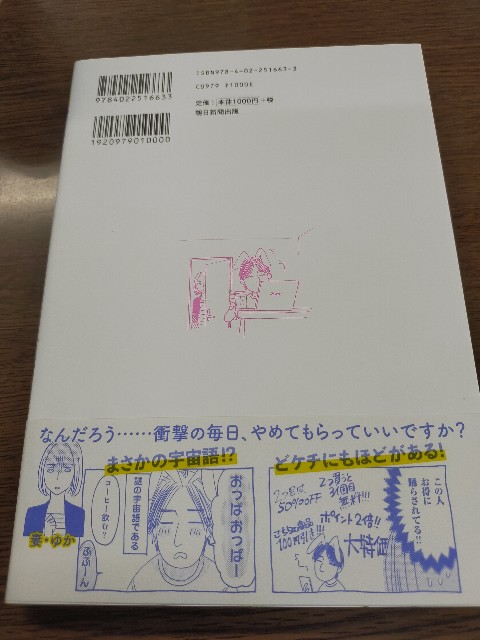 ISBN978-4-02-251663-3
C0979 ¥1000E
定価:本体1000円+税
朝日新聞出版
9784022516633
1920979010000
なんだろう……衝撃の毎日、やめてもらっていいですか?
まさかの宇宙語!?
おっぱおっぱー
謎の宇宙語である
コーヒー飲む?
あぶーん
妻・ゆか
どケチにもほどがある!
この人
お得に
踊らされてる!!
2つ買うと
3個目
無料!!!
2つ目は
50%OFF
ポイント2倍!!
こちらの商品
100円引き!!!
大特価